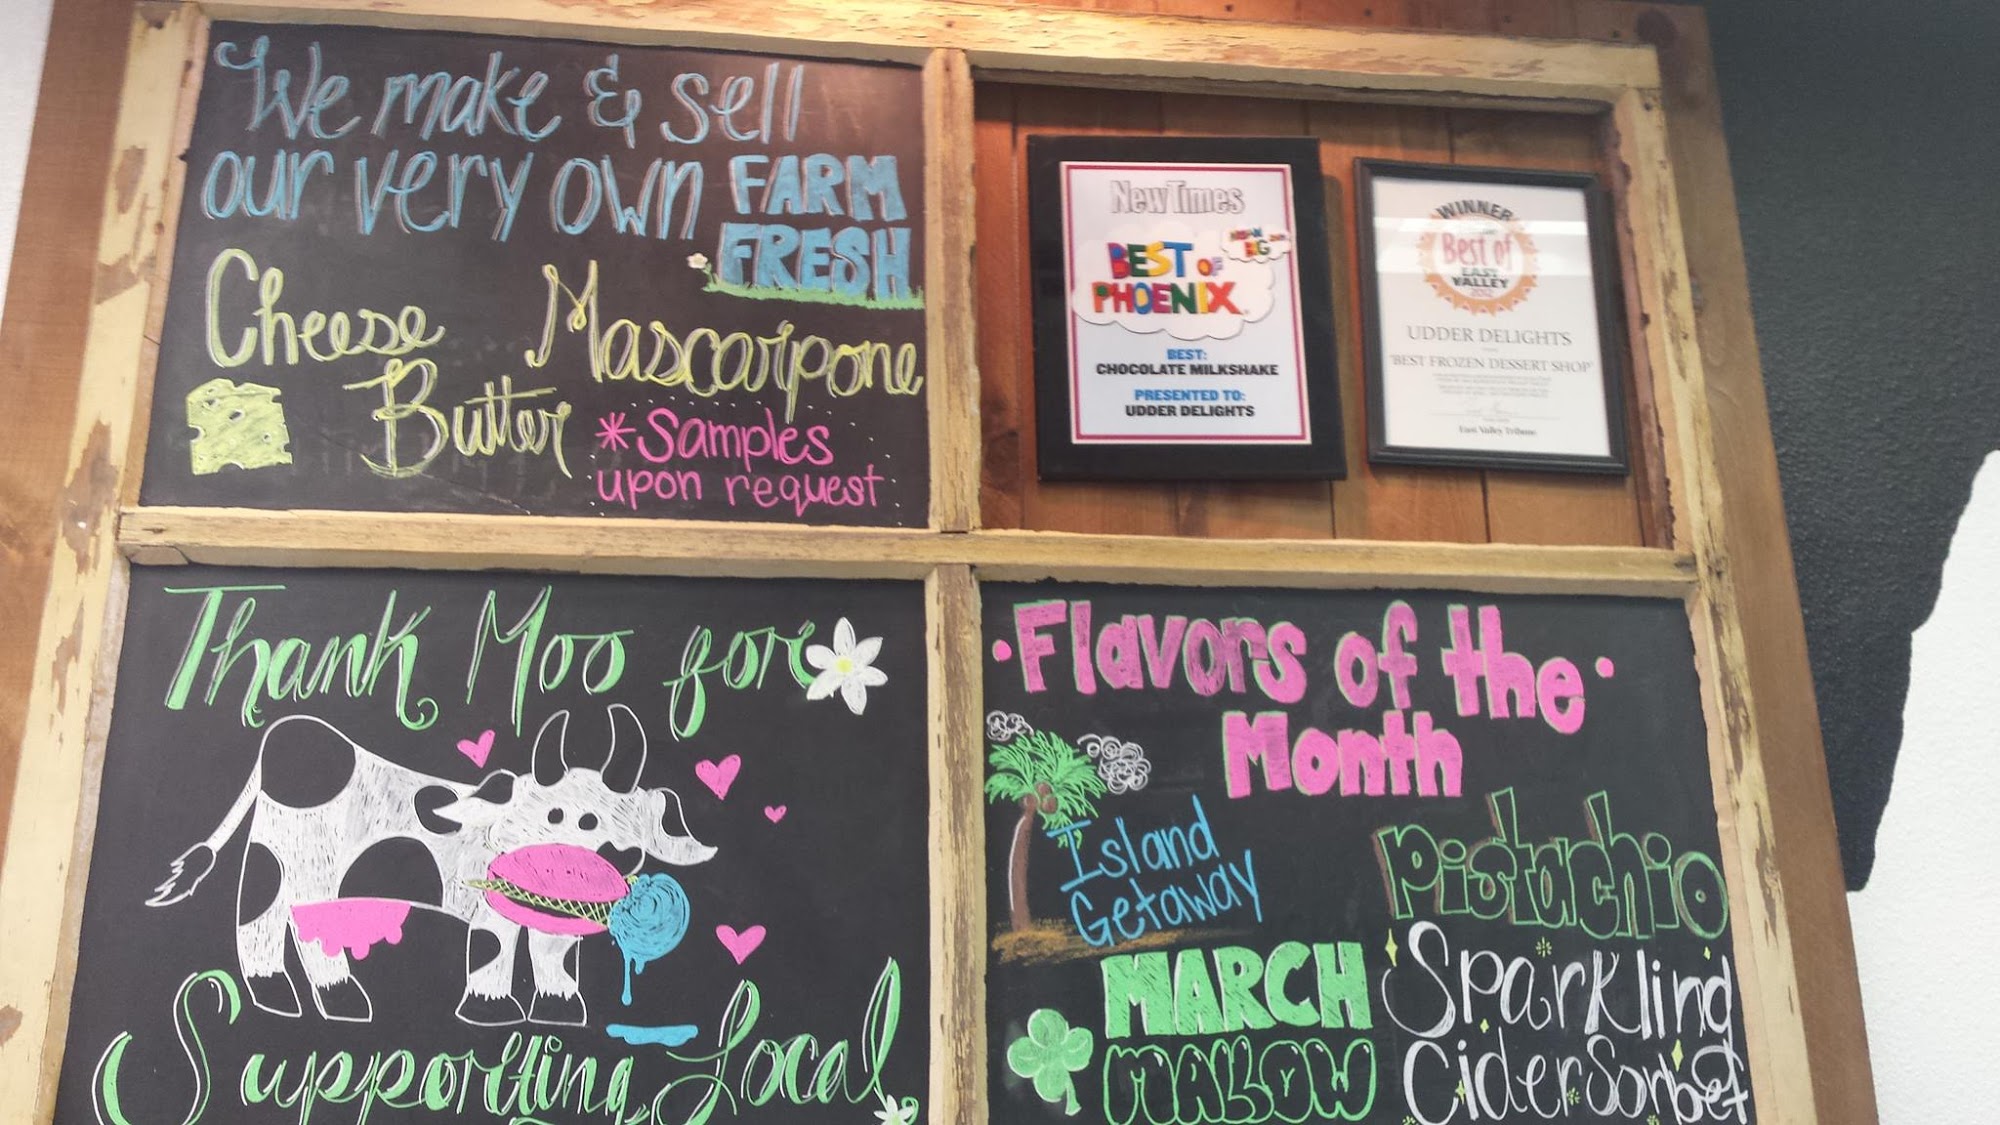 We make & sell
our very own FARM
FRESH
Cheese
Mascarpone
Butter
*Samples
upon request
New Times
BEST OF
PHOENIX
BIG
BEST:
CHOCOLATE MILKSHAKE
PRESENTED TO:
UDDER DELIGHTS
WINNER
Best of
EAST
VALLEY
2012
UDDER DELIGHTS
"BEST FROZEN DESSERT SHOP"
East Valley Tribune
Thank Moo for
Supporting Local
• Flavors of the •
Month
Island
Getaway
Pistachio
MARCH
MALLOW
Sparkling
Cider Sorbet